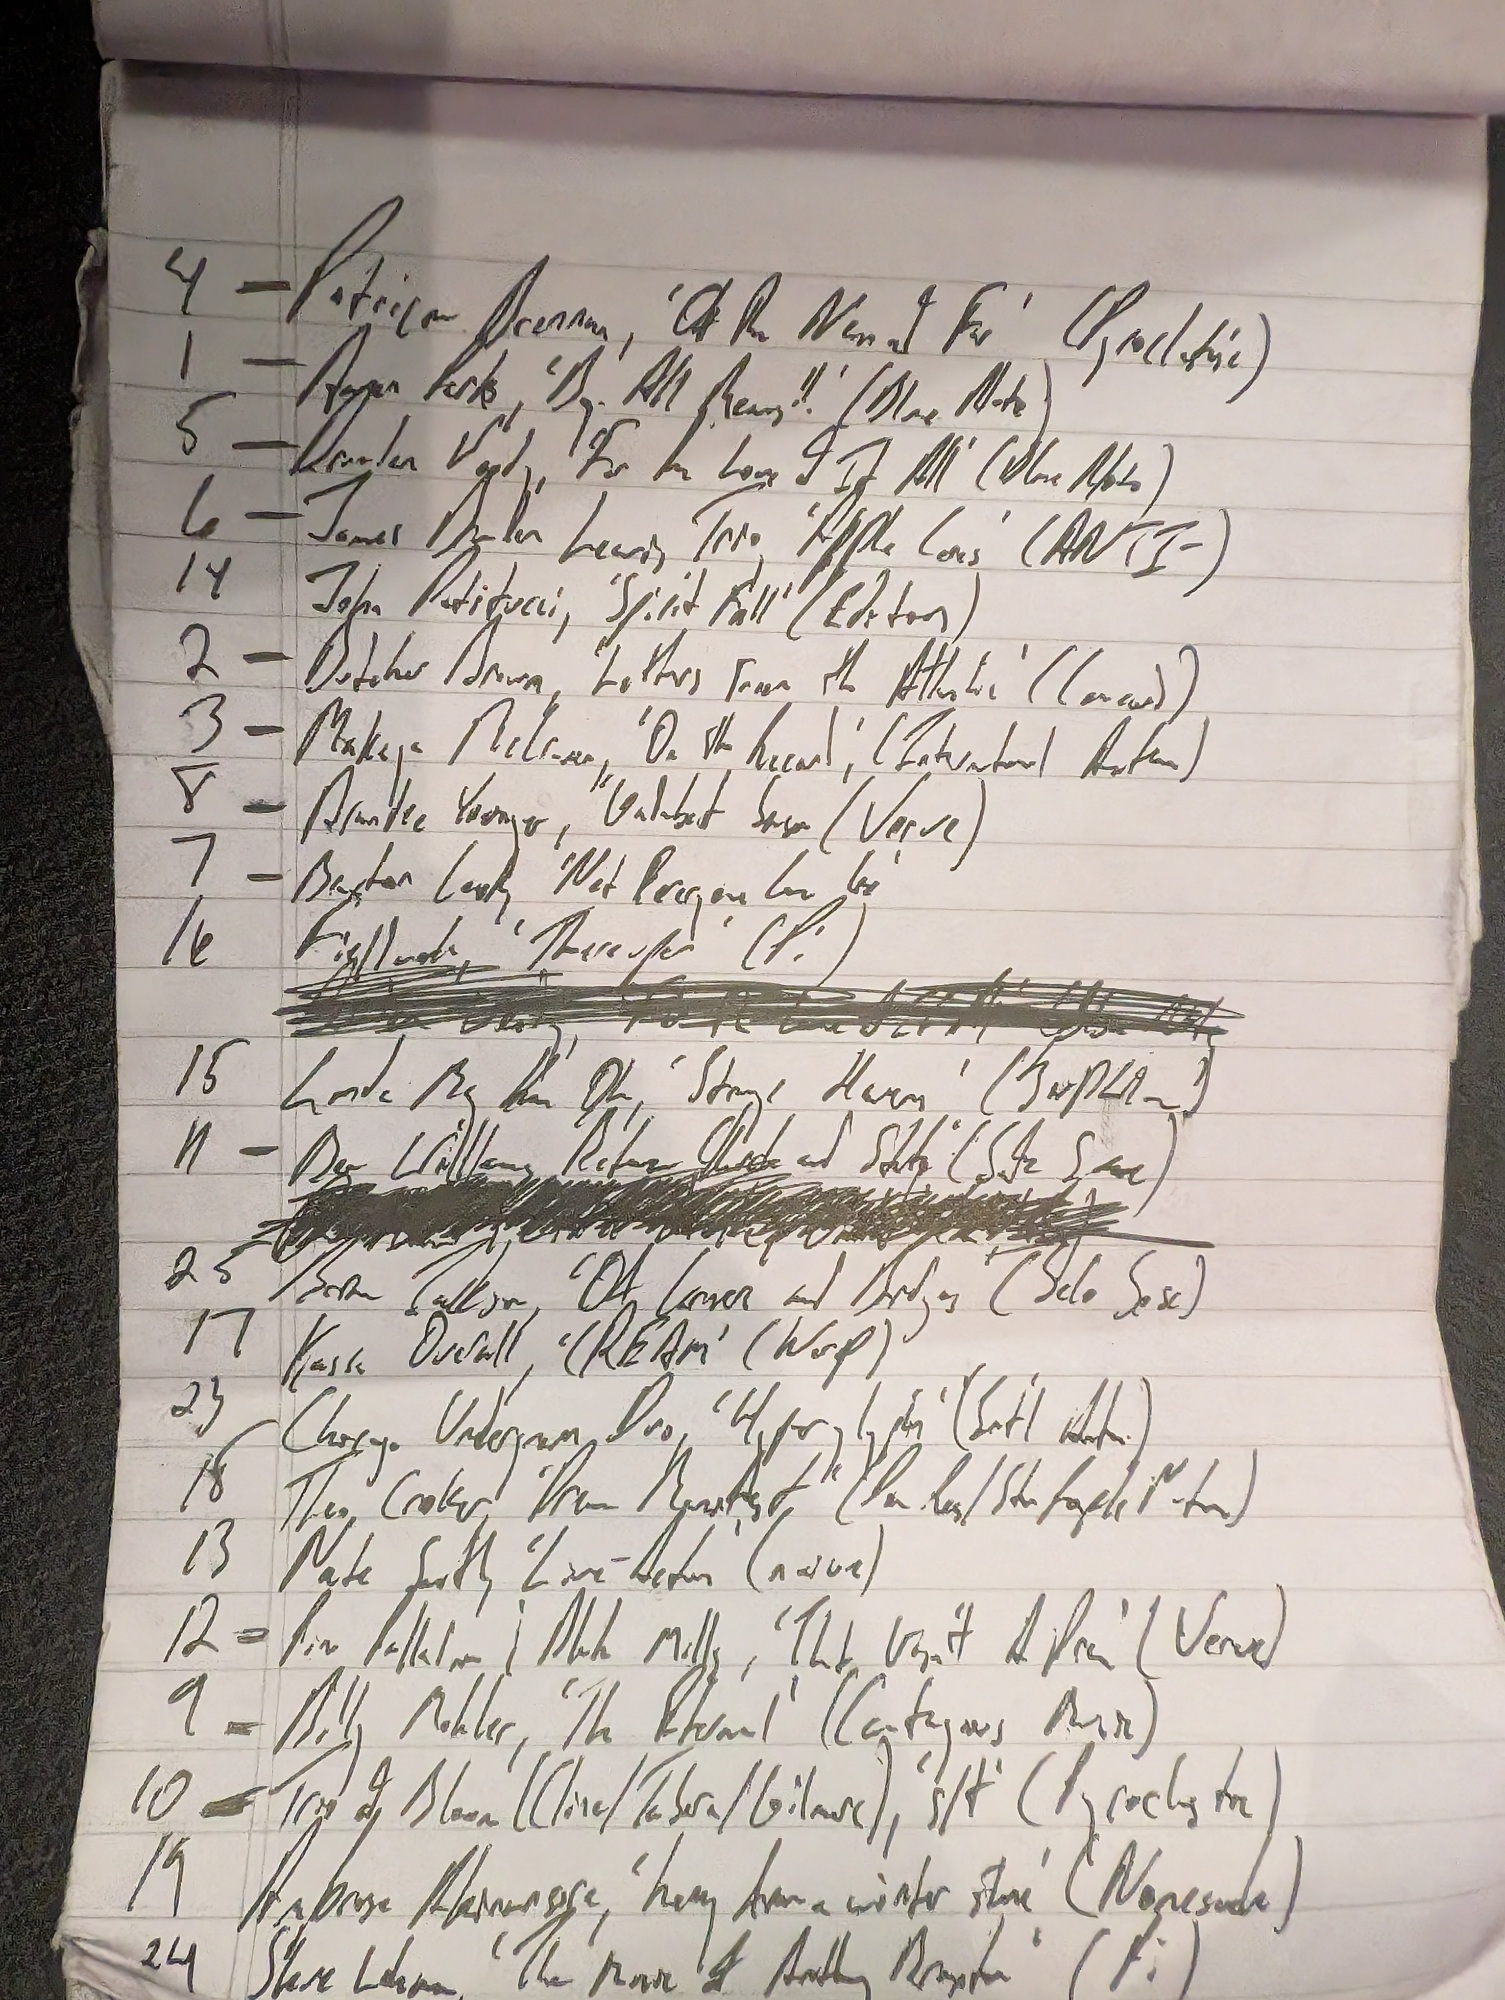 4 - Patricia Brennan, 'Of the Near and Far' (Pyroclastic)
1 - Aaron Parks, 'By All Means!!' (Blue Note)
5 - Brandon Woody, 'For the Love of It All' (Blue Note)
6 - James Brandon Lewis Trio, 'Apple Cores' (ANTI-)
14 John Patitucci, 'Spirit Fall' (Edition)
2 - Butcher Brown, 'Letters From the Atlantic' (Concord)
3 - Makaya McCraven, 'Off the Record', (International Anthem)
8 - Brandee Younger, "Gadabout Season (Verve)
7 - 'Not Everyone Can Go'
16 'Thereupon' (Pi)
15 Linda May Han Oh, 'Strange Heavens' (Biophilia)
11 - Ben Williams, Between Church and State' 
25 'Of Corner and Bridges'
17 Kassa Overall, 'CREAM' (Warp)
23 Chicago Underground Duo, 'Hyperglyph' (Int'l Anthem)
18 Theo Croker, 'Dream Manifest' 
13 Nate Smith, 'Live-Action' (naïve)
12 - Pino Palladino / Blake Mills, 'That Wasn't A Dream' (Verve)
9 - Billy Mohler, 'The Eternal' (Contagious Music)
10 - Trio of Bloom (Cline/Taborn/Gilmore), 's/t' (Pyroclastic)
19 Ambrose Akinmusire, 'honey from a winter stone' (Nonesuch)
24 Steve Lehman, 'The Music of Anthony Braxton' (Pi)